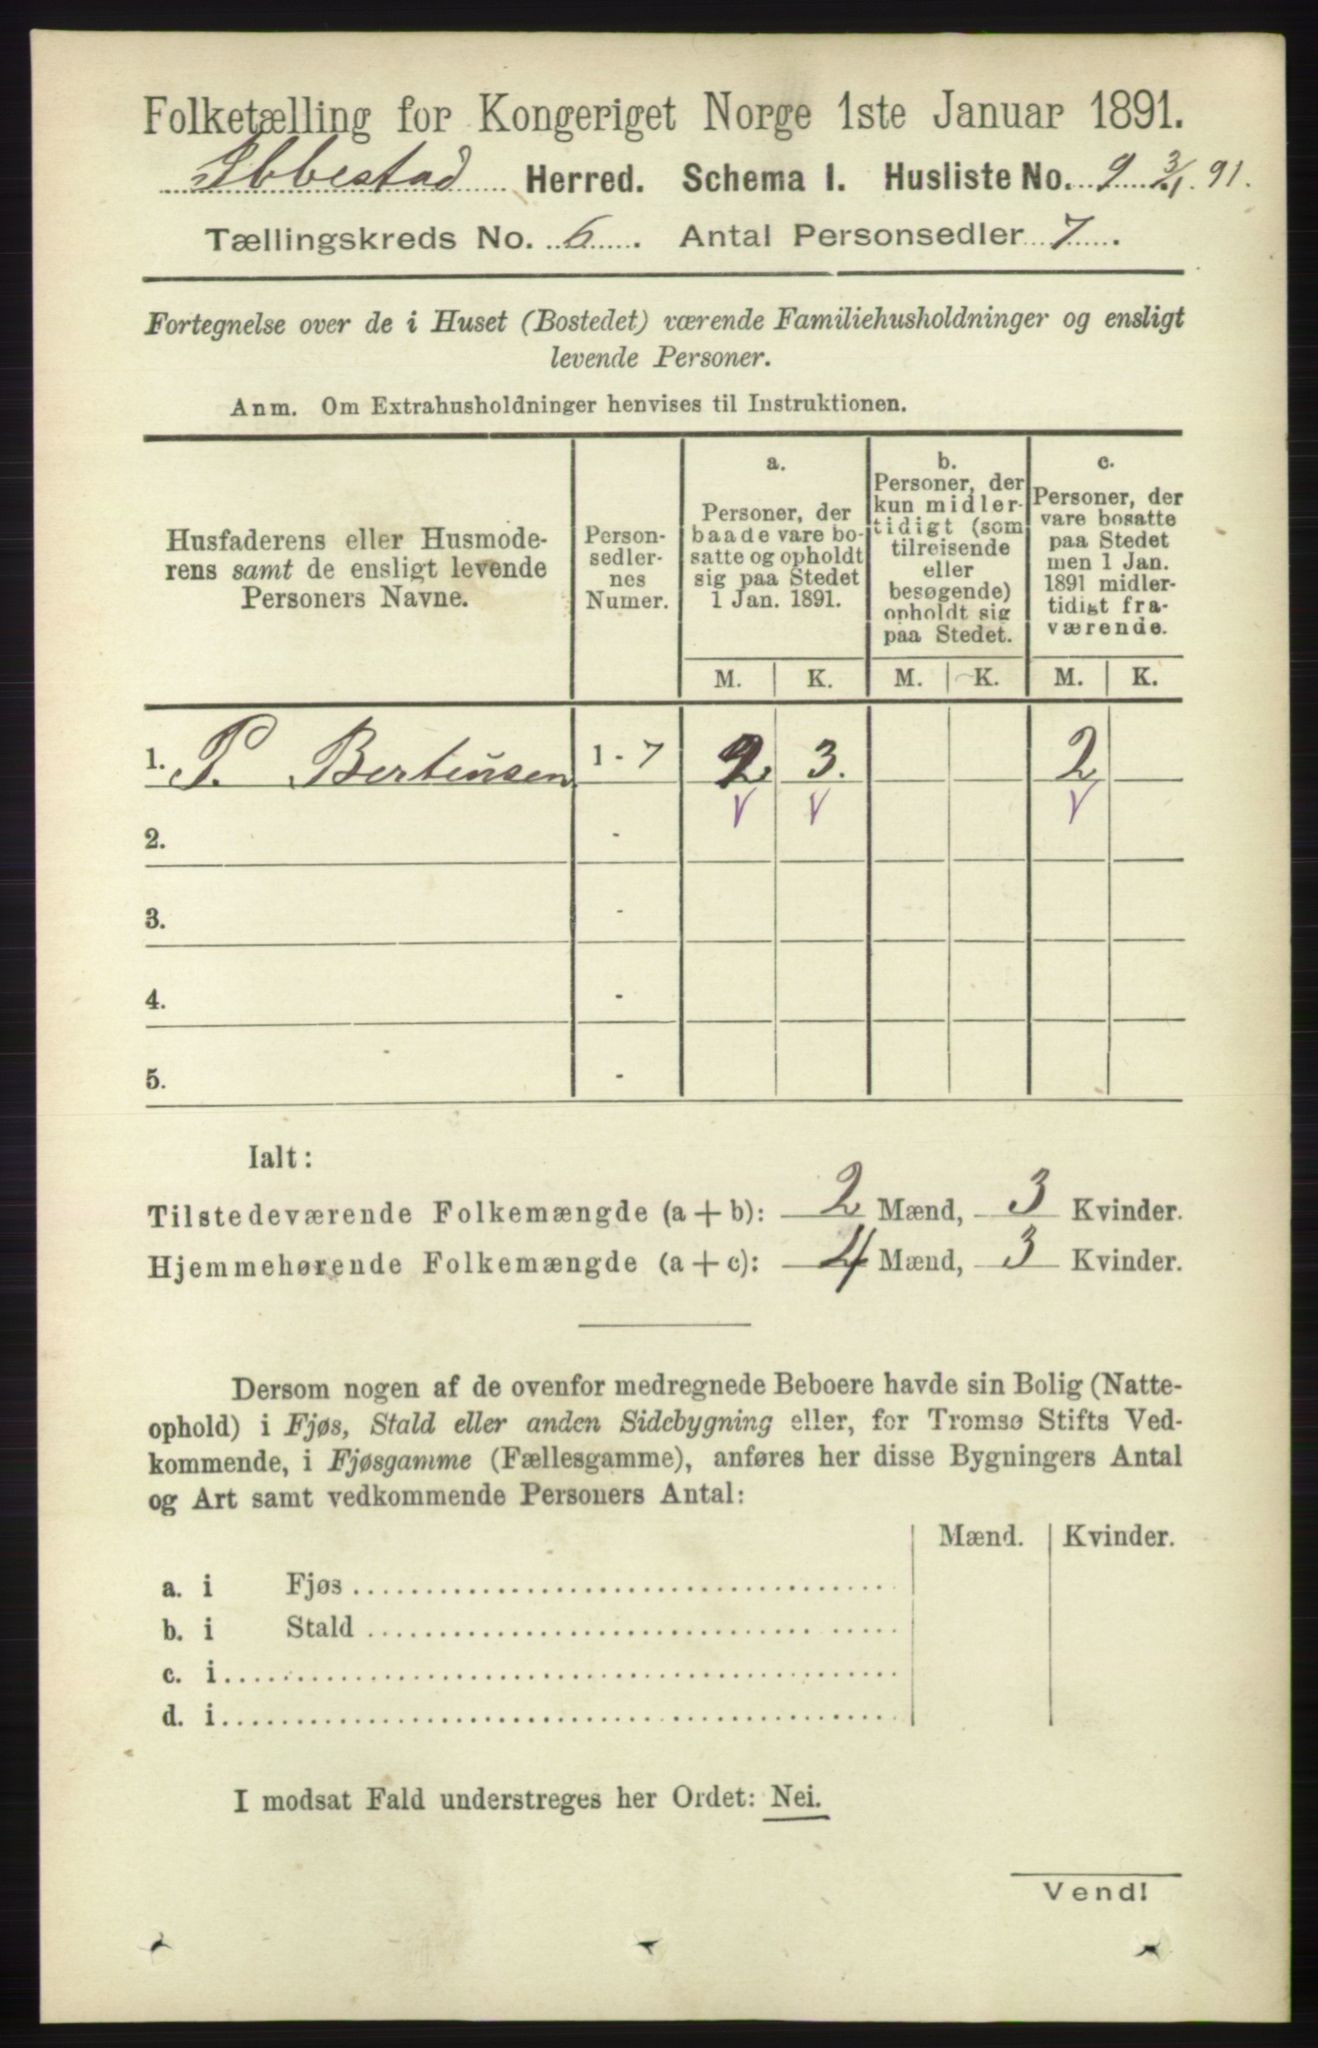 Folketælling for Kongeriget Norge 1ste Januar 1891.
Ibbestad Herred. Schema I. Husliste No. 9 3/1. 91.
Tællingskreds No. 6. Antal Personsedler 7.
Fortegnelse over de i Huset (Bostedet) værende Familiehusholdninger og ensligt
levende Personer.
Anm. Om Extrahusholdninger henvises til Instruktionen.
Husfaderens eller Husmode-
rens samt de ensligt levende
Personers Navne.
Person-
sedler-
nes
Numer.
a.
Personer, der
baade vare bo-
satte og opholdt
sig paa Stedet
1 Jan. 1891.
b.
Personer, der
kun midler-
tidigt (som
tilreisende
eller
besøgende)
opholdt sig
paa Stedet.
c.
Personer, der
vare bosatte
paa Stedet
men 1 Jan.
1891 midler-
tidigt fra-
værende.
M. K. M. K. M. K.
1. P. Bertinsen 1 - 7 2. 3. 2
V V V
2. -
3. -
4. -
5. -
Ialt:
Tilstedeværende Folkemængde (a + b): 2 Mænd, 3 Kvinder.
Hjemmehørende Folkemængde (a + c): 4 Mænd, 3 Kvinder.
Dersom nogen af de ovenfor medregnede Beboere havde sin Bolig (Natte-
ophold) i Fjøs, Stald eller anden Sidebygning eller, for Tromsø Stifts Ved-
kommende, i Fjøsgamme (Fællesgamme), anføres her disse Bygningers Antal
og Art samt vedkommende Personers Antal:
Mænd. Kvinder.
a. i Fjøs
b. i Stald
c. i
d. i
I modsat Fald understreges her Ordet: Nei.
Vend!